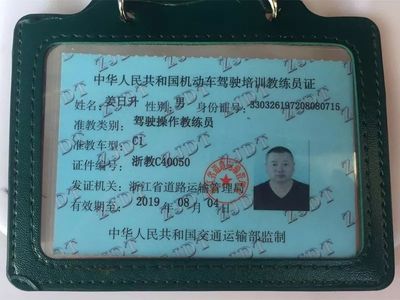 中华人民共和国机动车驾驶培训教练员证
姓名: 姜日升 性别: 男 身份证号: 330326197208080715
准教类别: 驾驶操作教练员
准教车型: C1
证件编号: 浙教C40050
发证机关: 浙江省道路运输管理局
有效期至: 2019 年 08 月 04 日
中华人民共和国交通运输部监制
ZJDT